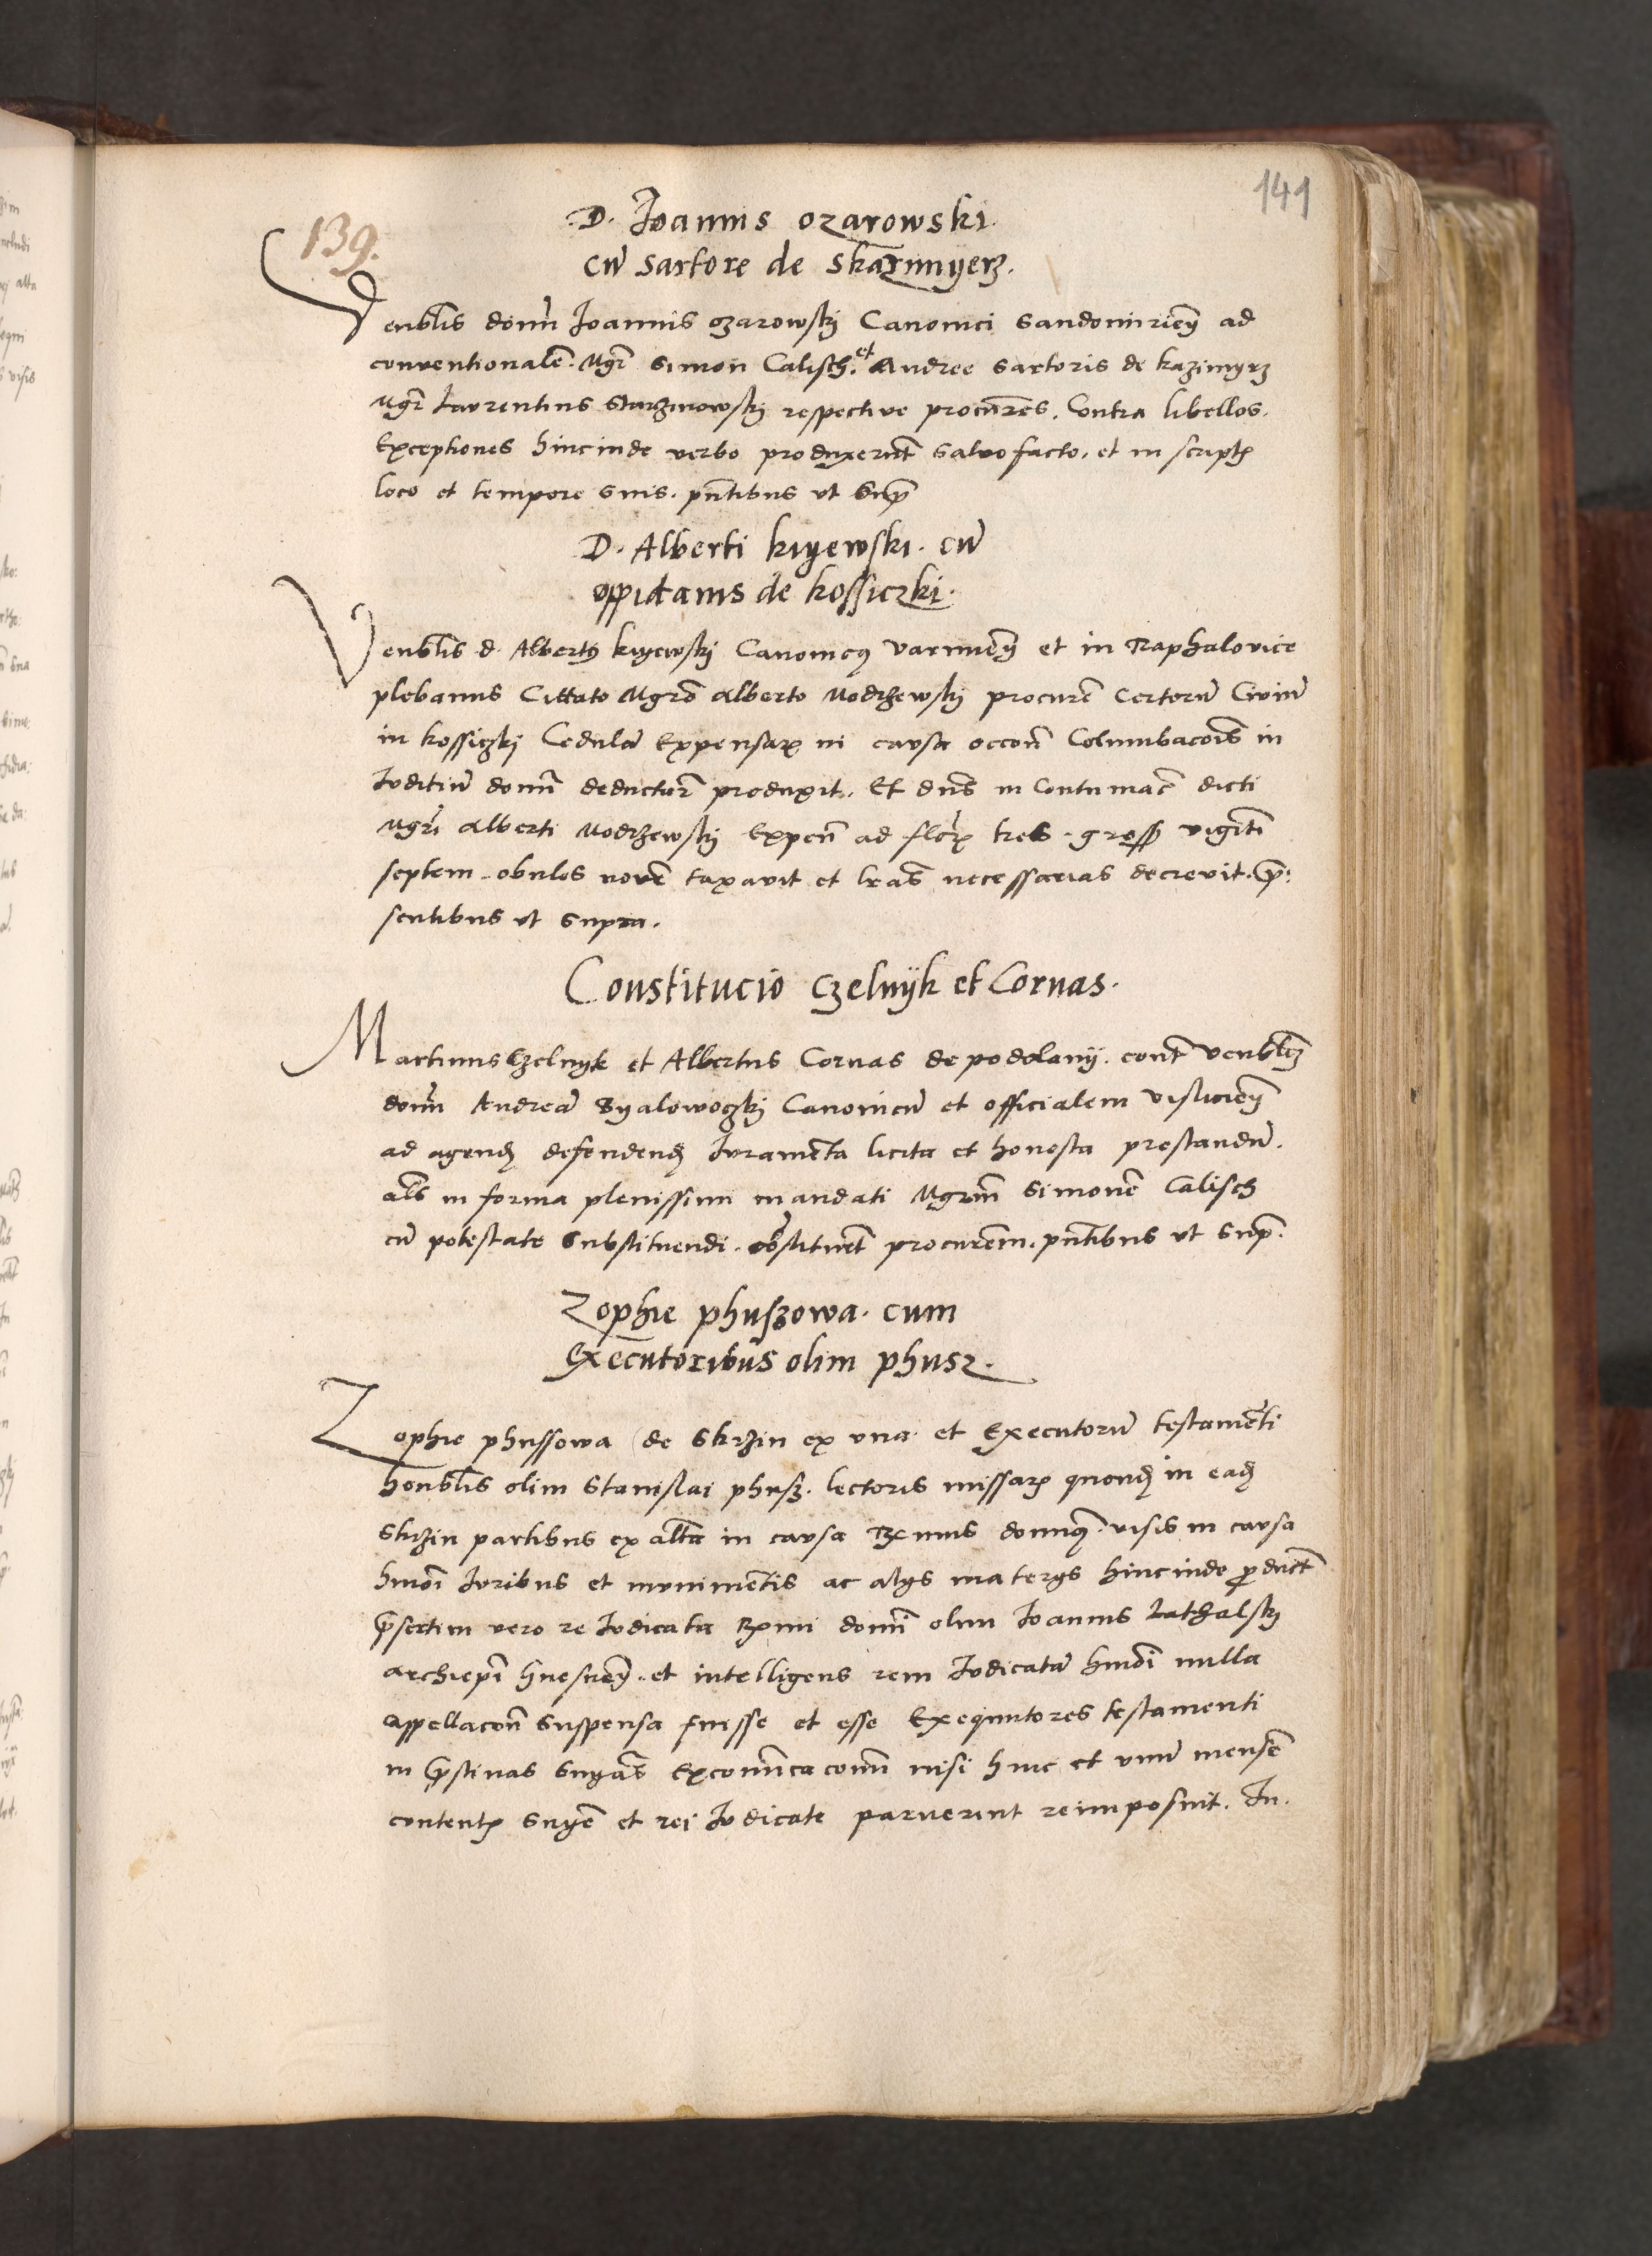 141
139.
D. Joannis ozarowski.
cū sartore de skarmyerz.
Venblis domi Joannis ozarowskj Canonici Sandomirieñ ad
conventionalē. Mgr̄ Simon Calisch. et Andree Sartoris de kazimyrz
Mgr̄ Laurentius respective procures. Contra libellos.
Exceptiones hincinde verbo produxerūt salvo facto. et in script
loco et tempore suis. pñtibus ut Sup
D. Alberti kiyewski. cū
oppidanis de kossiczki.
Venblis d. Albertus kiyewskj Canonicus varmieñ et in Raphalovice
plebanus Cittato Mgrō Alberto Modrzewskj procurē Certorū Civiū
in kossiczkj Cedulā Expensar in causa occoñ Columbacois in
Juditiū domi deductar̄ produxit. Et dñs in Contumac̄ dicti
Mgri Alberti Modrzewskj Expeñ ad flor tres. gross viginti
septem obulos novē taxavit et lras necessarias decrevit. p̄:
sentibus ut supra.
Constitucio Czelnyk et Cornas.
Martinus Czelnyk et Albertus Cornas de podolany. cont Venblem
domi Andreā Byalowoczkj Canonicū et officialem Visliciēn
ad agend defendend Juramēta licita et honesta prestandū.
als in forma plenissimi mandati Mgrm̄ Simonē Calisch
cū potestate Substituendi. costituēt procurēm. pñtibus ut Sup.
Zophie phuszowa. cum
Executoribus olim phusz.
Zophie phussowa de Skrzin ex una et Executorū testamēti
honblis olim Stanislai phusz. lectoris missar quond in ead
Skrzin partibus ex altā in causa Rx mus domnus. visis in causa
hmōi Juribus et munimētis ac alys materys hincinde product
p̄sertim vero re Judicata Rx mi domi olim Joannis Lathalskj
archiepī Gnesneñ. et intelligens rem Judicatā hmōi nulla
appellacoñ Suspensa fuisse et esse Exequutores testamenti
in p̄stinas Snyas Excomīcacoum nisi hinc et unū mensē
content Snye et rei Judicate paruerint reimposuit. In.